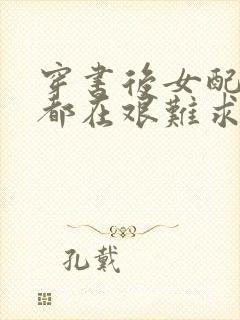 穿書後女配
都在艱難求
孔戴